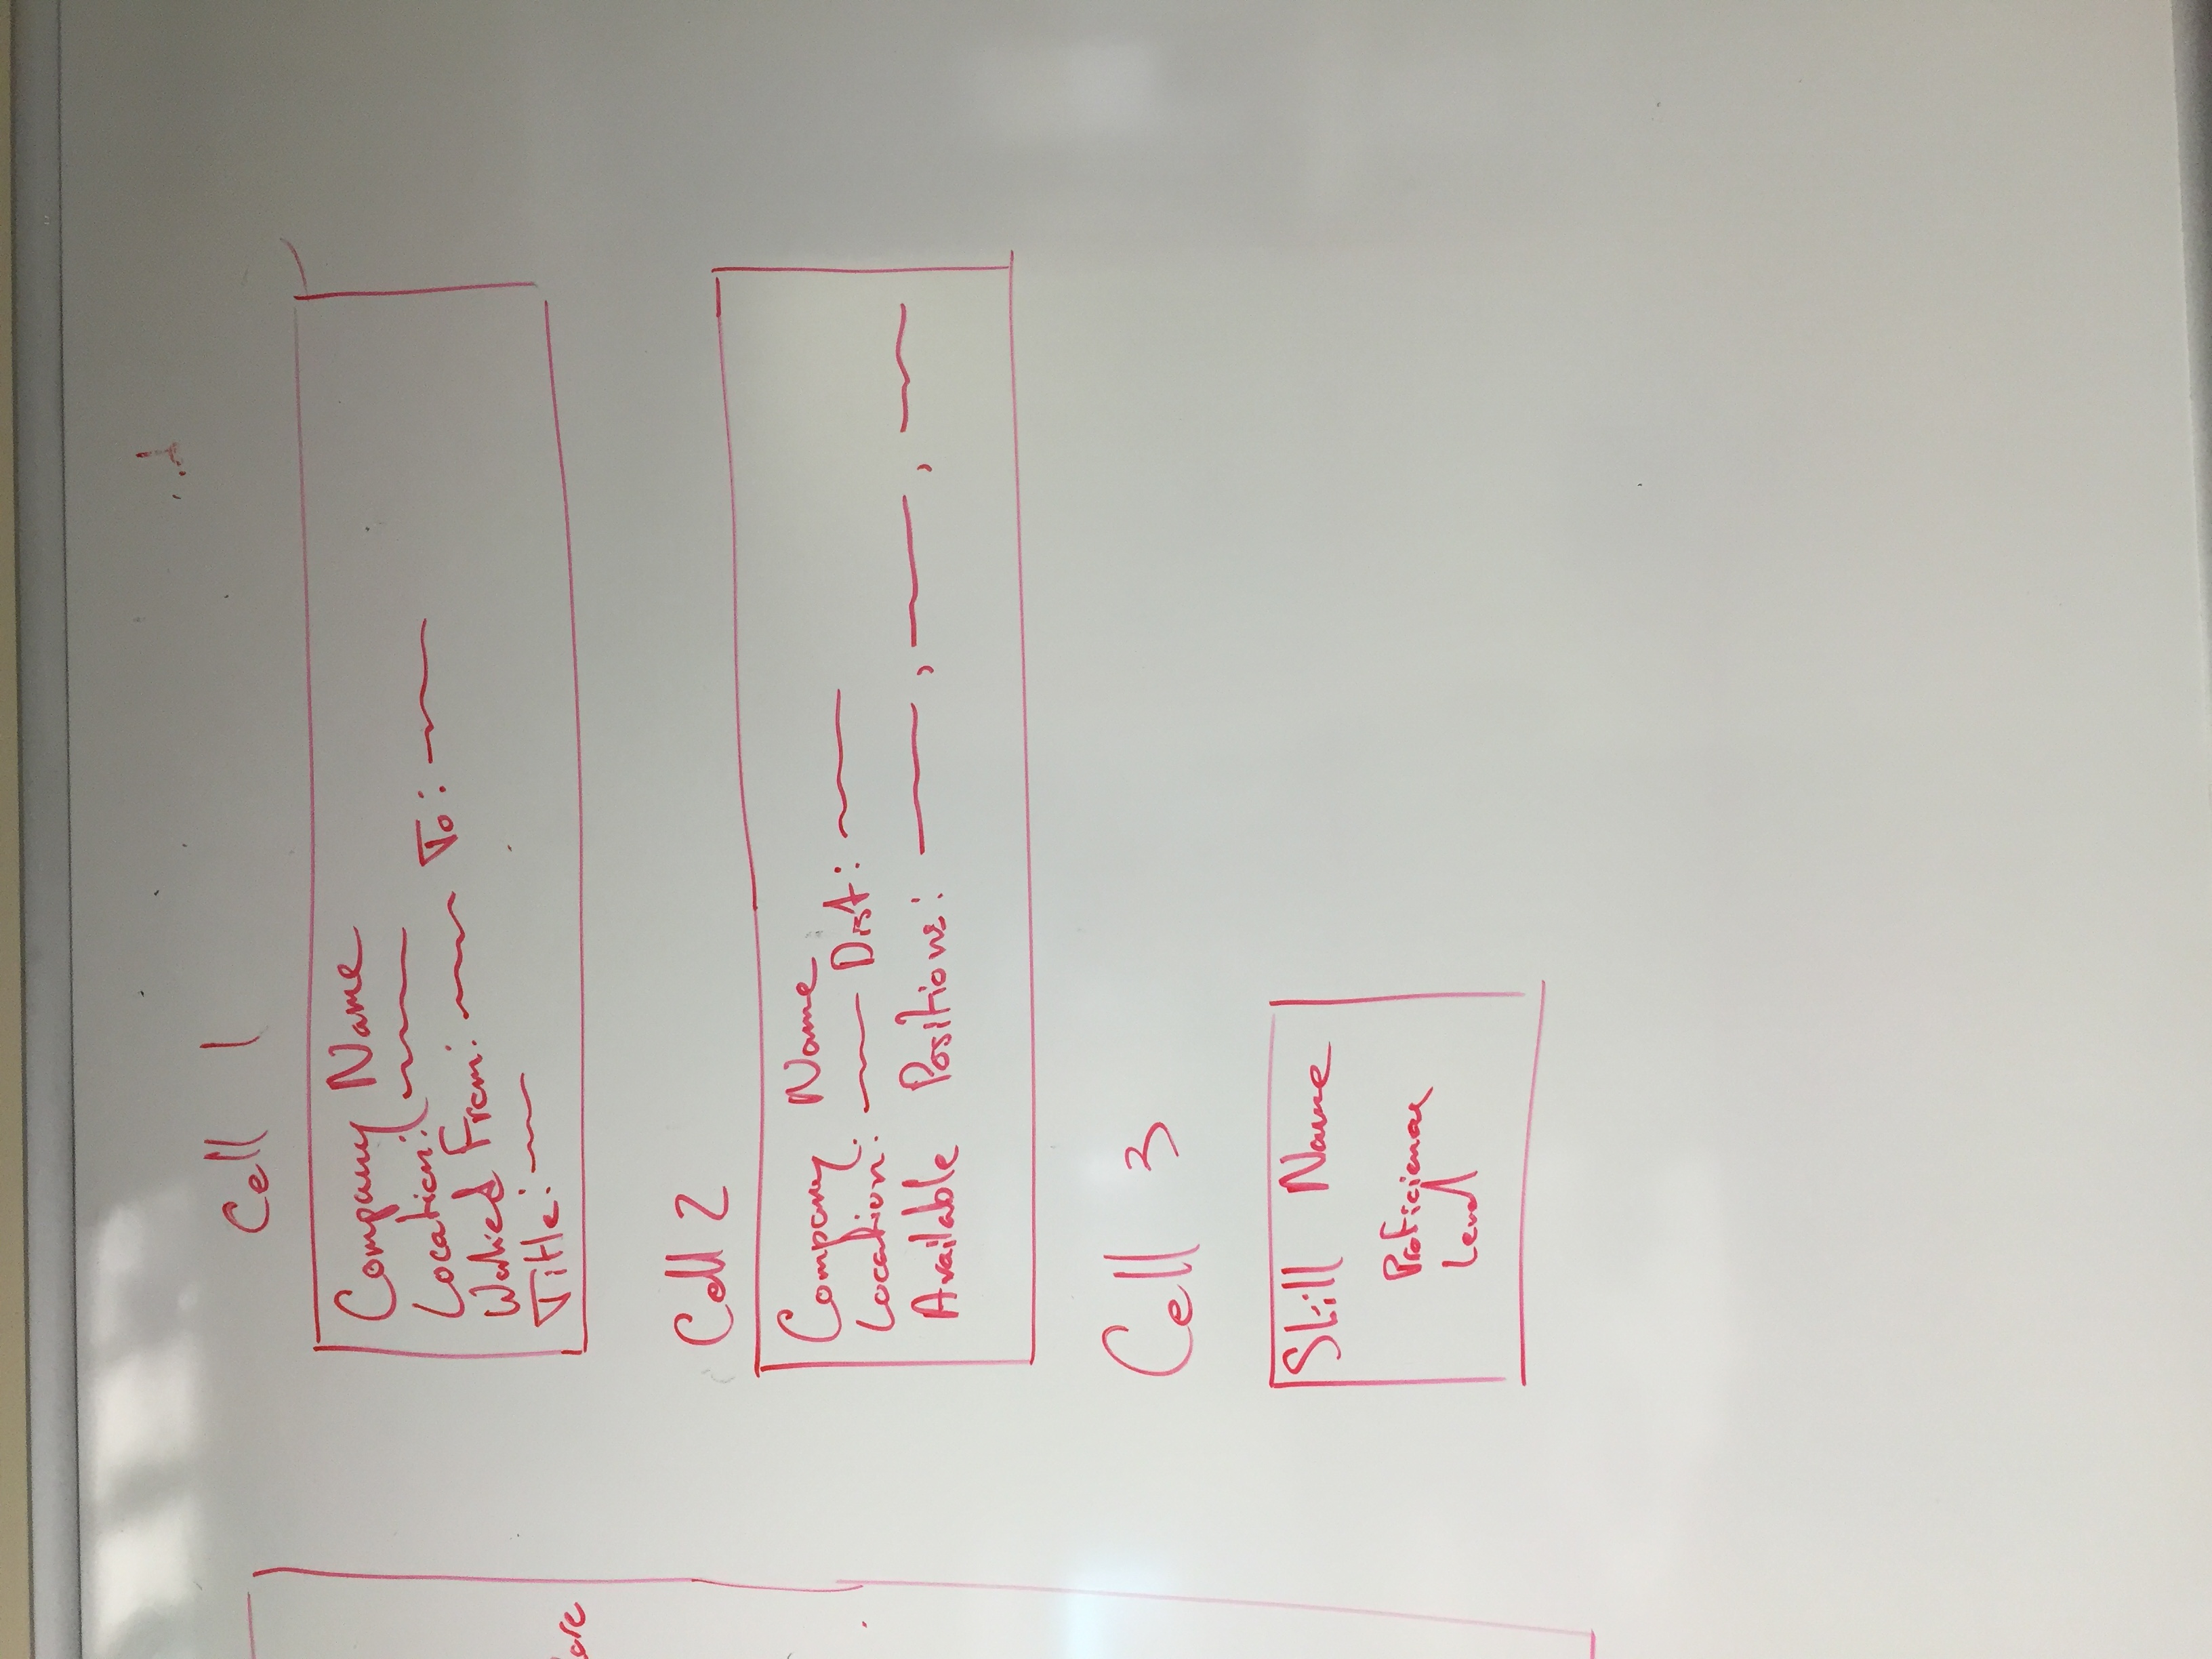 Cell 1
Company Name
Location:
Worked From: To:
Title:
Cell 2
Company Name
Location: Dist:
Available Positions: , ,
Cell 3
Skill Name
Proficiency
Level